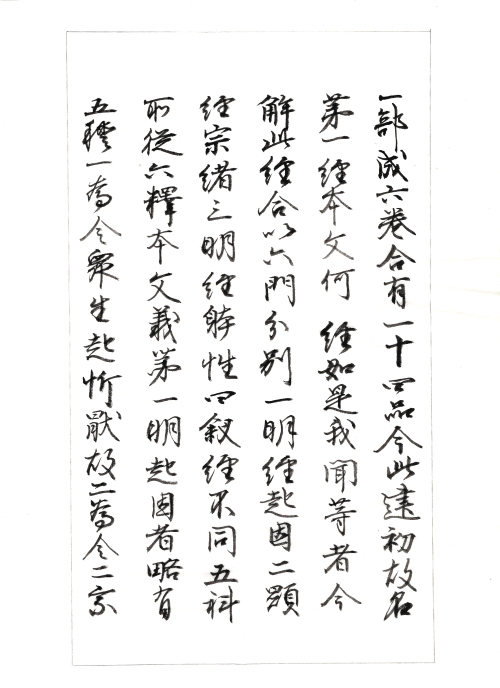 一部成六卷合有一十四品今此建初故名
第一經本文何 經如是我聞等者今
解此經合以六門分別一明經起因二顯
經宗緒三明經體性四叙經不同五科
所從六釋本文義第一明起因者略有
五種一為令眾生起忻厭故二為令二宗